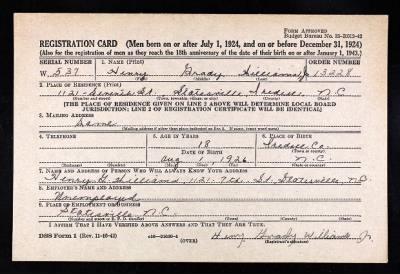 FORM APPROVED
Budget Bureau No. 33-R012-42
REGISTRATION CARD (Men born on or after July 1, 1924, and on or before December 31, 1924)
(Also for the registration of men as they reach the 18th anniversary of the date of their birth on or after January 1, 1943.)
SERIAL NUMBER 1. NAME (Print) ORDER NUMBER
W 537 Henry Grady Williams Jr 13228
2. PLACE OF RESIDENCE (Print)
1121 St. Statesville Iredell N.C.
(Number and street) (Town, township, village, or city) (County) (State)
[THE PLACE OF RESIDENCE GIVEN ON LINE 2 ABOVE WILL DETERMINE LOCAL BOARD
JURISDICTION; LINE 2 OF REGISTRATION CERTIFICATE WILL BE IDENTICAL]
3. MAILING ADDRESS
Same
[Mailing address if other than place indicated on line 2. If same, insert word same]
4. TELEPHONE 5. AGE IN YEARS 6. PLACE OF BIRTH
18 Iredell Co.
DATE OF BIRTH (Town or county)
Aug 1, 1926 N.C.
(Exchange) (Number) (Mo.) (Day) (Yr.) (State or country)
7. NAME AND ADDRESS OF PERSON WHO WILL ALWAYS KNOW YOUR ADDRESS
Henry G. Williams 1121 7th St. Statesville, N.C.
8. EMPLOYER'S NAME AND ADDRESS
Unemployed
9. PLACE OF EMPLOYMENT OR BUSINESS
Statesville, N.C.
(Number and street or R. F. D. number) (Town) (County) (State)
I AFFIRM THAT I HAVE VERIFIED ABOVE ANSWERS AND THAT THEY ARE TRUE.
DSS Form 1 (Rev. 11-16-42) (OVER) Henry Grady Williams Jr.
(Registrant's signature)